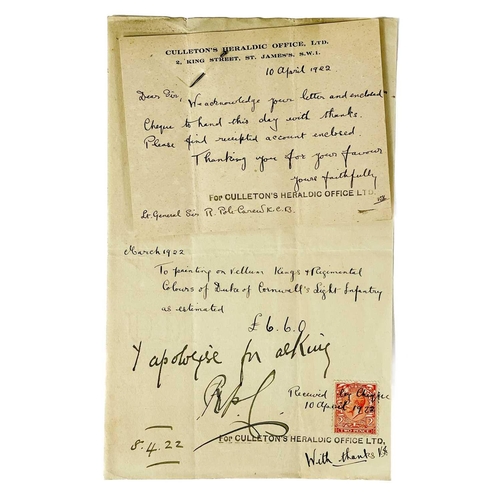 CULLETON'S HERALDIC OFFICE, LTD.
2, KING STREET, ST. JAMES'S, S.W.1.
10 April 1922.
Dear Sir, We acknowledge your letter and enclosed
Cheque to hand this day with thanks.
Please find receipted account enclosed.
Thanking you for your favour
yours faithfully
FOR CULLETON'S HERALDIC OFFICE LTD.
Lt. General Sir R. Pole Carew K.C.B.
March 1922
To painting on Vellum Kings & Regimental
Colours of Duke of Cornwall's Light Infantry
as estimated
£6.6.0
I apologise for asking
Received by Cheque
10 April 1922
TWO PENCE
8.4.22
FOR CULLETON'S HERALDIC OFFICE LTD.
With thanks